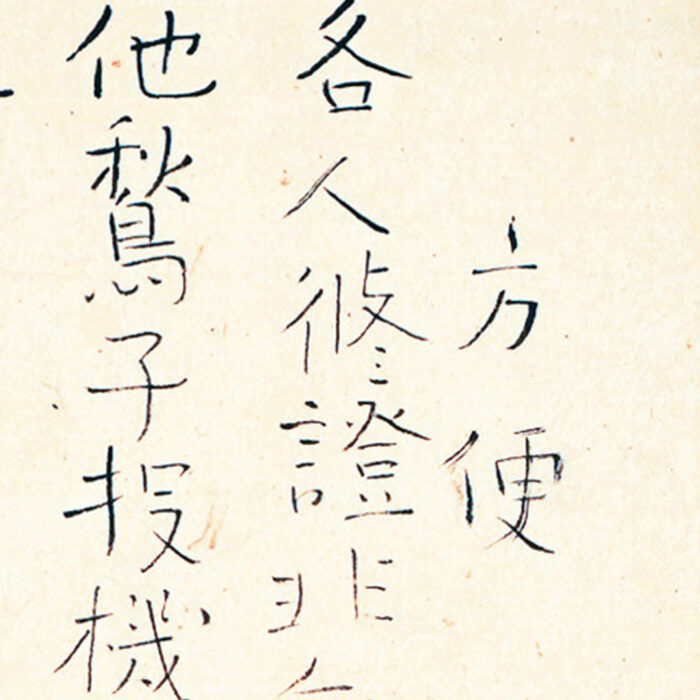 方便
各人修證非
他鶖子投機